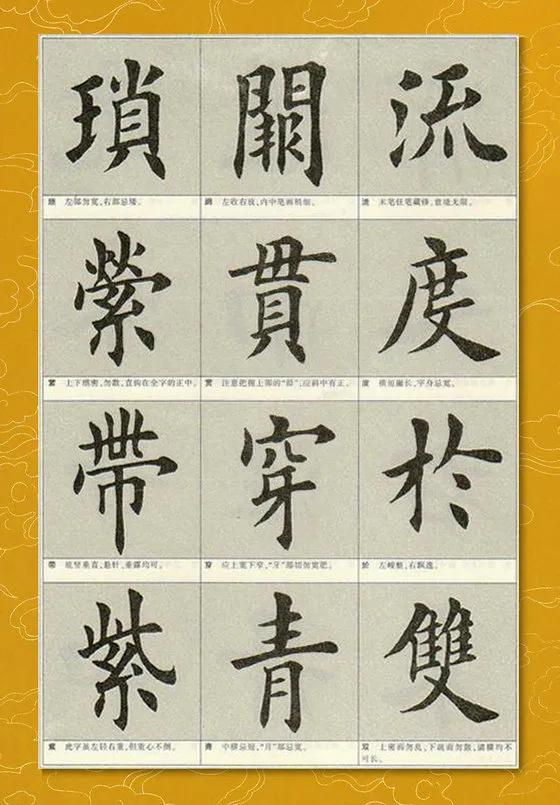 流
度
横短撇长,字身忌宽。
於
於 左峻整,右飘逸。
雙
双 上密而勿乱,下疏而勿散,诸横均不
可长。
闕
左收右放,内中笔画稍细。
貫
注意把握上部的“毌”,应斜中有正。
穿
穿 应上宽下窄,“牙”部切勿宽肥。
青
青 中横忌短,“月”部忌宽。
瑣
左部勿宽,右部忌矮。
縈
上下缜密,勿散,直钩在全字的正中。
帶
底竖垂直,悬针、垂露均可。
紫
紫 此字虽左轻右重,但重心不倒。